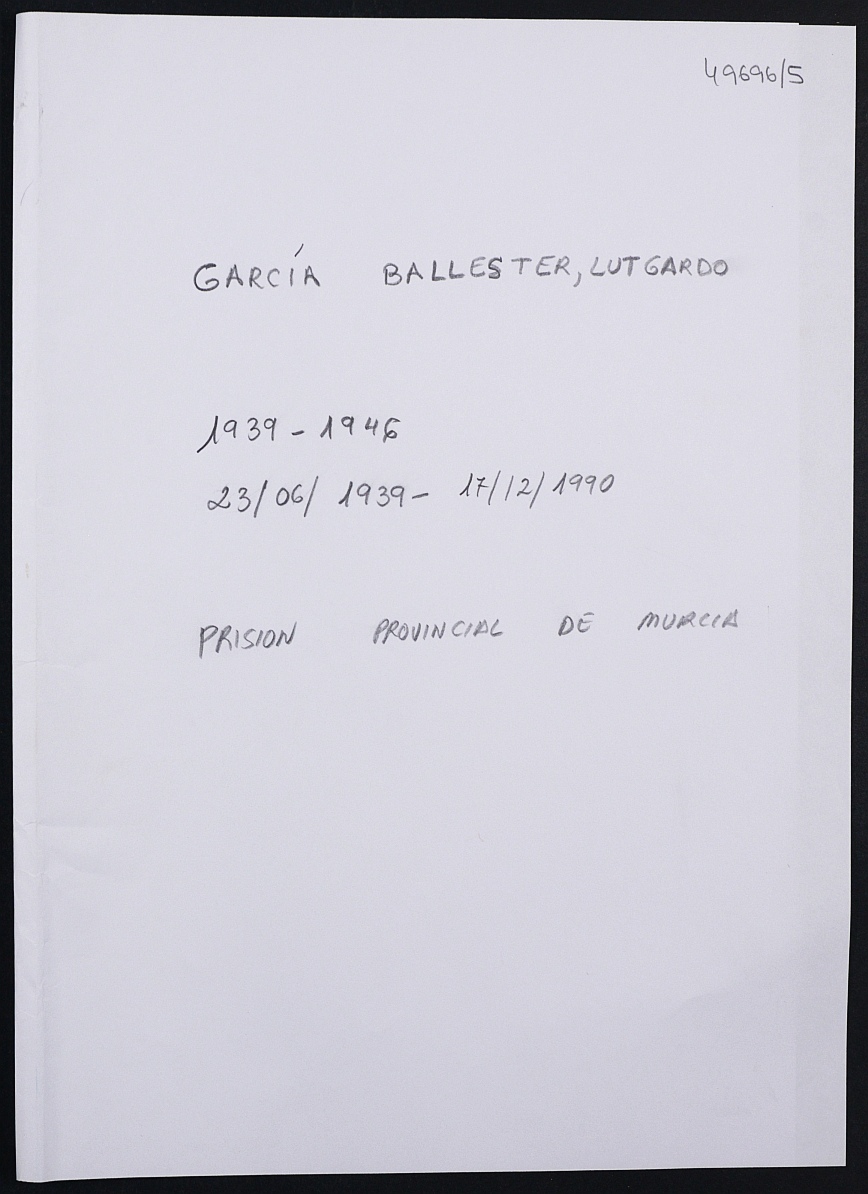 49696/5
GARCÍA BALLESTER, LUTGARDO
1939 - 1946
23/06/1939 - 17/12/1990
PRISION PROVINCIAL DE MURCIA